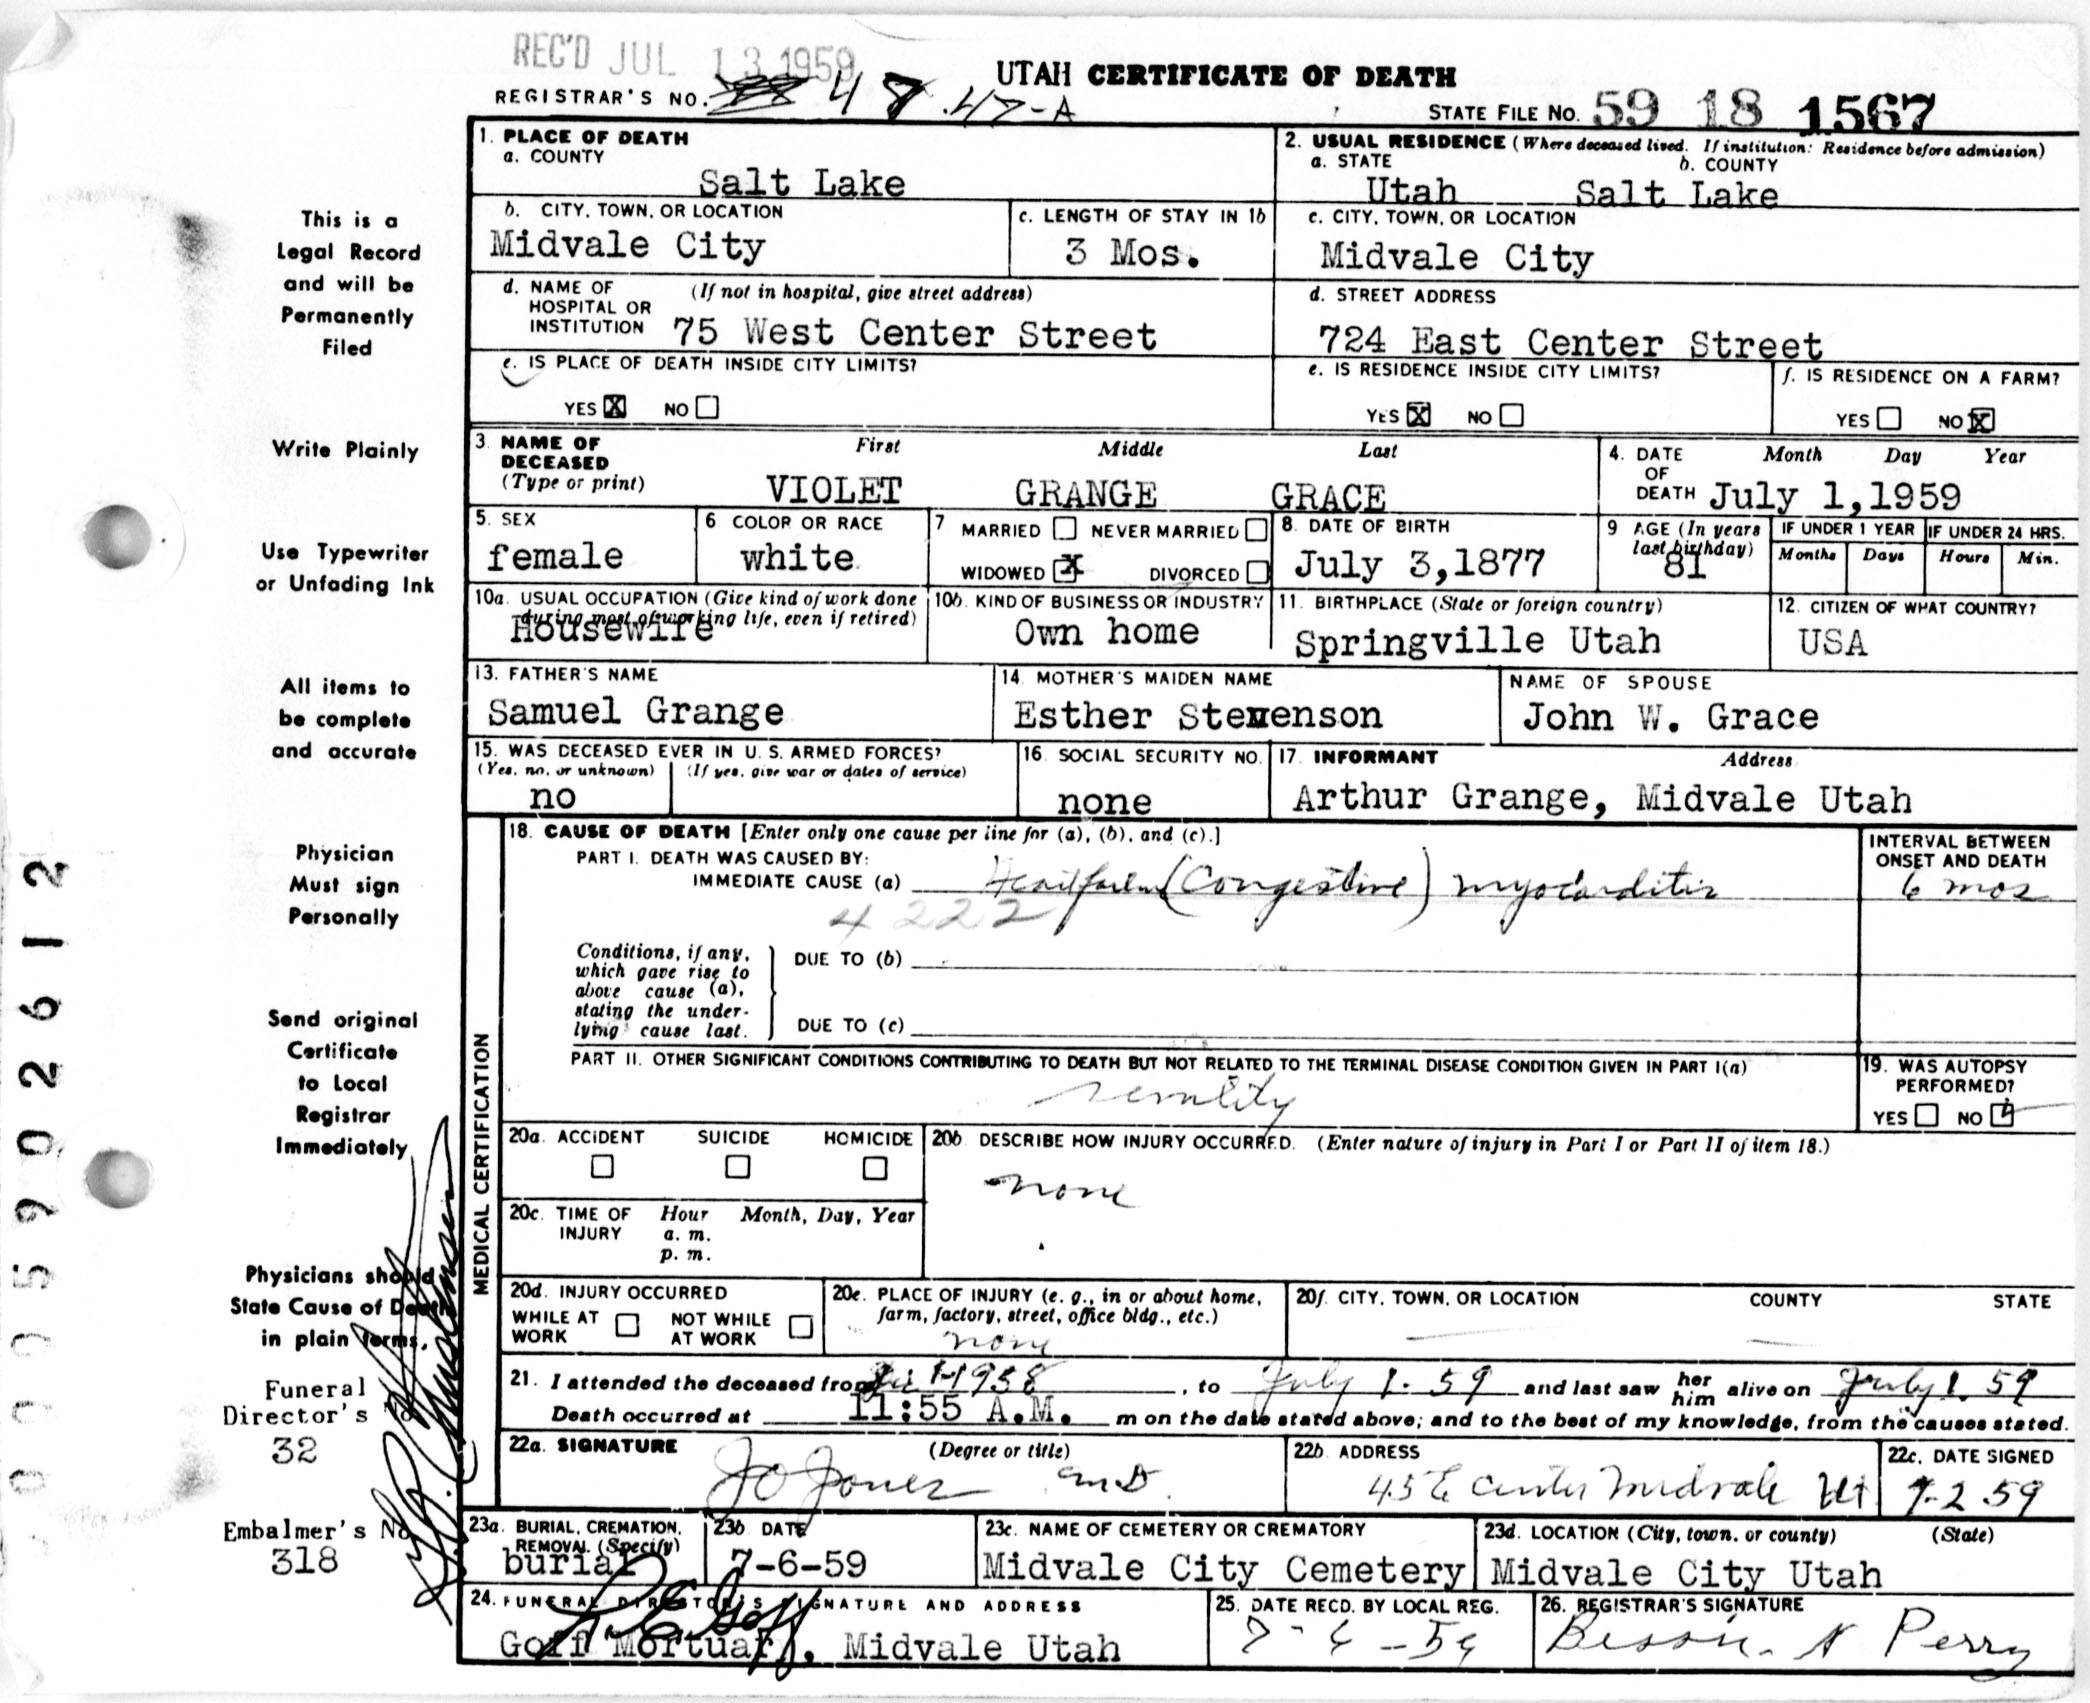 REC'D JUL 13 1959
UTAH CERTIFICATE OF DEATH
REGISTRAR'S NO. 48 47-A
STATE FILE NO. 59 18 1567
1. PLACE OF DEATH
a. COUNTY
Salt Lake
2. USUAL RESIDENCE (Where deceased lived. If institution: Residence before admission)
a. STATE b. COUNTY
Utah Salt Lake
b. CITY, TOWN, OR LOCATION
Midvale City
c. LENGTH OF STAY IN 1b
3 Mos.
c. CITY, TOWN, OR LOCATION
Midvale City
d. NAME OF HOSPITAL OR INSTITUTION (If not in hospital, give street address)
75 West Center Street
d. STREET ADDRESS
724 East Center Street
e. IS PLACE OF DEATH INSIDE CITY LIMITS?
YES X NO
e. IS RESIDENCE INSIDE CITY LIMITS?
YES X NO
f. IS RESIDENCE ON A FARM?
YES NO X
3. NAME OF DECEASED (Type or print)
First Middle Last
VIOLET GRANGE GRACE
4. DATE OF DEATH Month Day Year
July 1,1959
5. SEX
female
6. COLOR OR RACE
white
7 MARRIED NEVER MARRIED
WIDOWED X DIVORCED
8. DATE OF BIRTH
July 3,1877
9 AGE (In years last birthday)
81
IF UNDER 1 YEAR
Months Days
IF UNDER 24 HRS.
Hours Min.
10a. USUAL OCCUPATION (Give kind of work done during most of working life, even if retired)
Housewife
10b. KIND OF BUSINESS OR INDUSTRY
Own home
11. BIRTHPLACE (State or foreign country)
Springville Utah
12. CITIZEN OF WHAT COUNTRY?
USA
13. FATHER'S NAME
Samuel Grange
14. MOTHER'S MAIDEN NAME
Esther Stevenson
NAME OF SPOUSE
John W. Grace
15. WAS DECEASED EVER IN U. S. ARMED FORCES?
(Yes, no, or unknown) (If yes, give war or dates of service)
no
16. SOCIAL SECURITY NO.
none
17. INFORMANT Address
Arthur Grange, Midvale Utah
MEDICAL CERTIFICATION
18. CAUSE OF DEATH [Enter only one cause per line for (a), (b), and (c).]
PART I. DEATH WAS CAUSED BY:
IMMEDIATE CAUSE (a) (Congestive) myocarditis
4222
INTERVAL BETWEEN ONSET AND DEATH
6 mos
Conditions, if any, which gave rise to above cause (a), stating the underlying cause last.
DUE TO (b)
DUE TO (c)
PART II. OTHER SIGNIFICANT CONDITIONS CONTRIBUTING TO DEATH BUT NOT RELATED TO THE TERMINAL DISEASE CONDITION GIVEN IN PART I(a)
senility
19. WAS AUTOPSY PERFORMED?
YES NO
20a. ACCIDENT SUICIDE HOMICIDE
20b DESCRIBE HOW INJURY OCCURRED. (Enter nature of injury in Part I or Part II of item 18.)
none
20c. TIME OF INJURY Hour Month, Day, Year
a. m.
p. m.
20d. INJURY OCCURRED
WHILE AT WORK NOT WHILE AT WORK
20e. PLACE OF INJURY (e. g., in or about home, farm, factory, street, office bldg., etc.)
none
20f. CITY, TOWN, OR LOCATION COUNTY STATE
21. I attended the deceased from 1-1958, to July 1. 59 and last saw her him alive on July 1. 59
Death occurred at 11:55 A.M. m on the date stated above; and to the best of my knowledge, from the causes stated.
22a. SIGNATURE (Degree or title)
JO Jones M.D.
22b ADDRESS
45 E Center Midvale Ut
22c. DATE SIGNED
7-2.59
23a. BURIAL, CREMATION, REMOVAL (Specify)
burial
23b DATE
7-6-59
23c. NAME OF CEMETERY OR CREMATORY
Midvale City Cemetery
23d. LOCATION (City, town, or county) (State)
Midvale City Utah
24. FUNERAL DIRECTOR'S SIGNATURE AND ADDRESS
R E Goff
Goff Mortuary, Midvale Utah
25. DATE RECD. BY LOCAL REG.
7-6-59
26. REGISTRAR'S SIGNATURE
Bessie N Perry
This is a
Legal Record
and will be
Permanently
Filed
Write Plainly
Use Typewriter
or Unfading Ink
All items to
be complete
and accurate
Physician
Must sign
Personally
Send original
Certificate
to Local
Registrar
Immediately
Physicians should
State Cause of Death
in plain terms.
Funeral
Director's No
32
Embalmer's No
318
0005902612